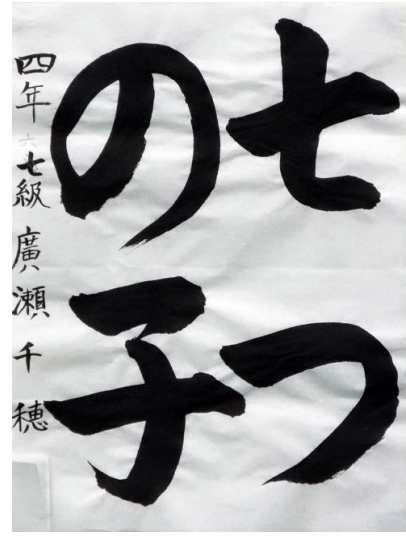 七つ
の子
四年 六七級 廣瀬千穂